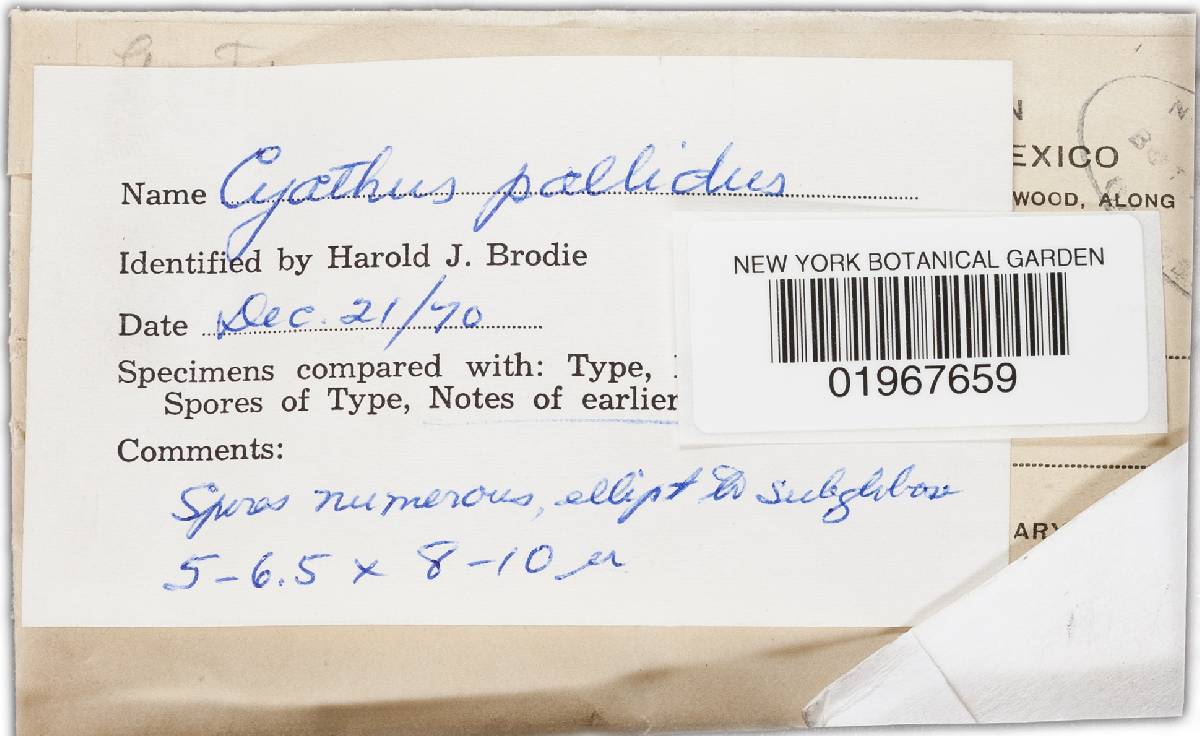 EXICO
WOOD, ALONG
Name Cyathus pallidus
Identified by Harold J. Brodie
Date Dec. 21/70
Specimens compared with: Type,
Spores of Type, Notes of earlier
Comments:
Spores numerous, ellipt to subglobose
5-6.5 x 8-10 µ
NEW YORK BOTANICAL GARDEN
01967659
ARY